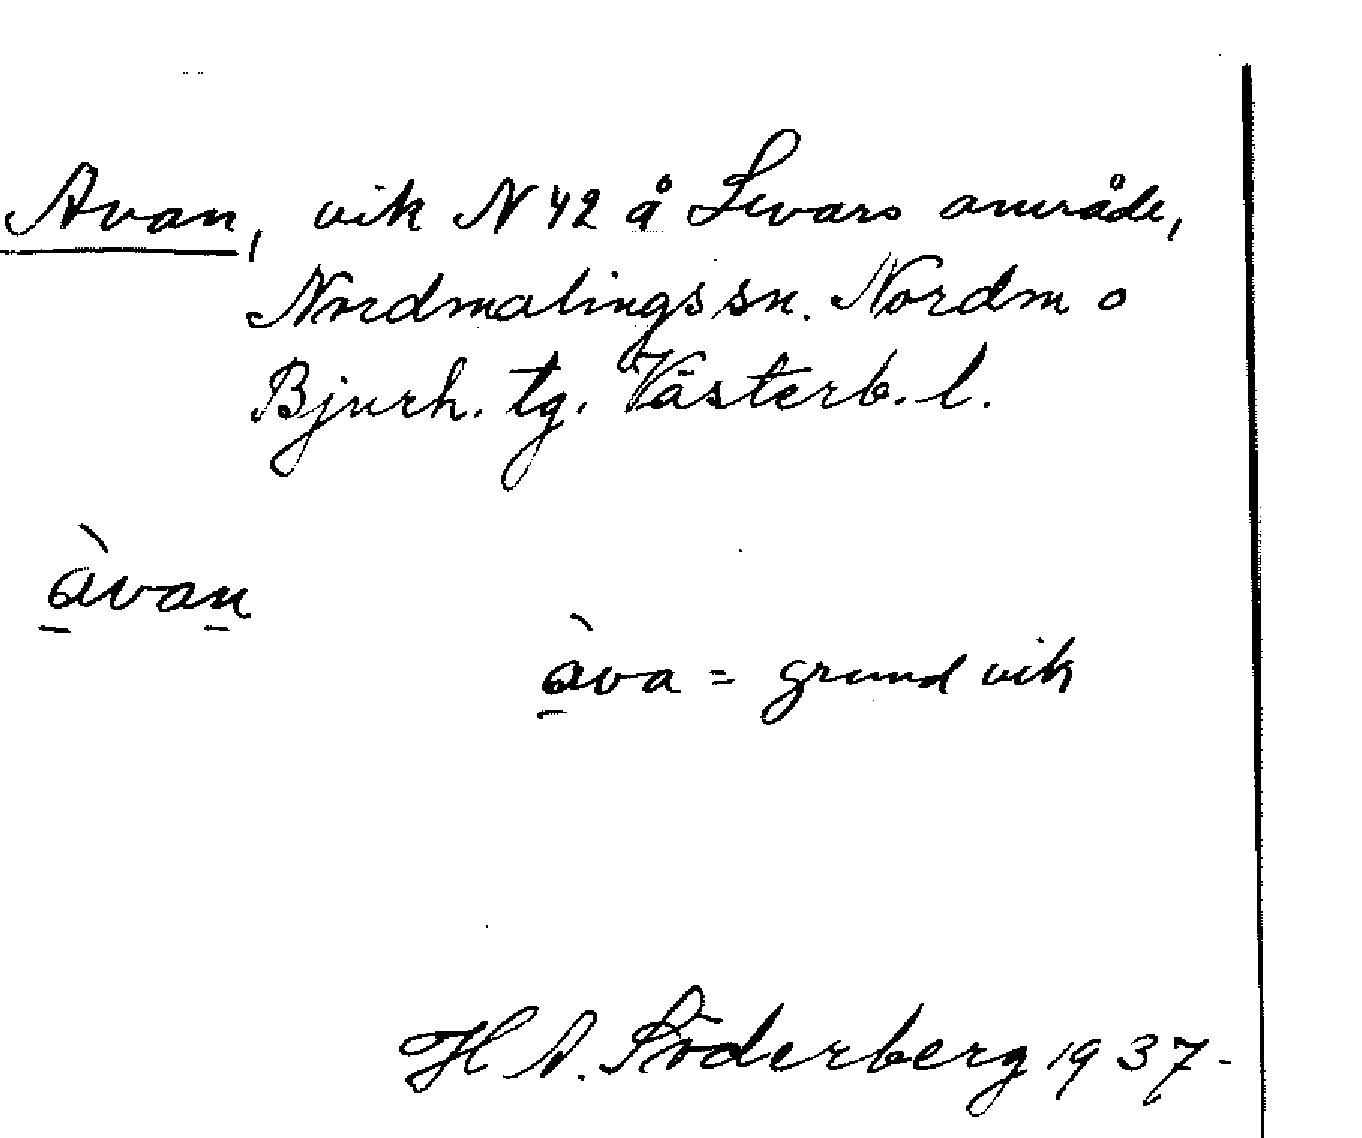 Avan, vik N 42 å Levars område,
Nordmalings sn. Nordm o
Bjurh. tg. Västerb. l.
àvan
àva = grund vik
H A. Söderberg 1937-